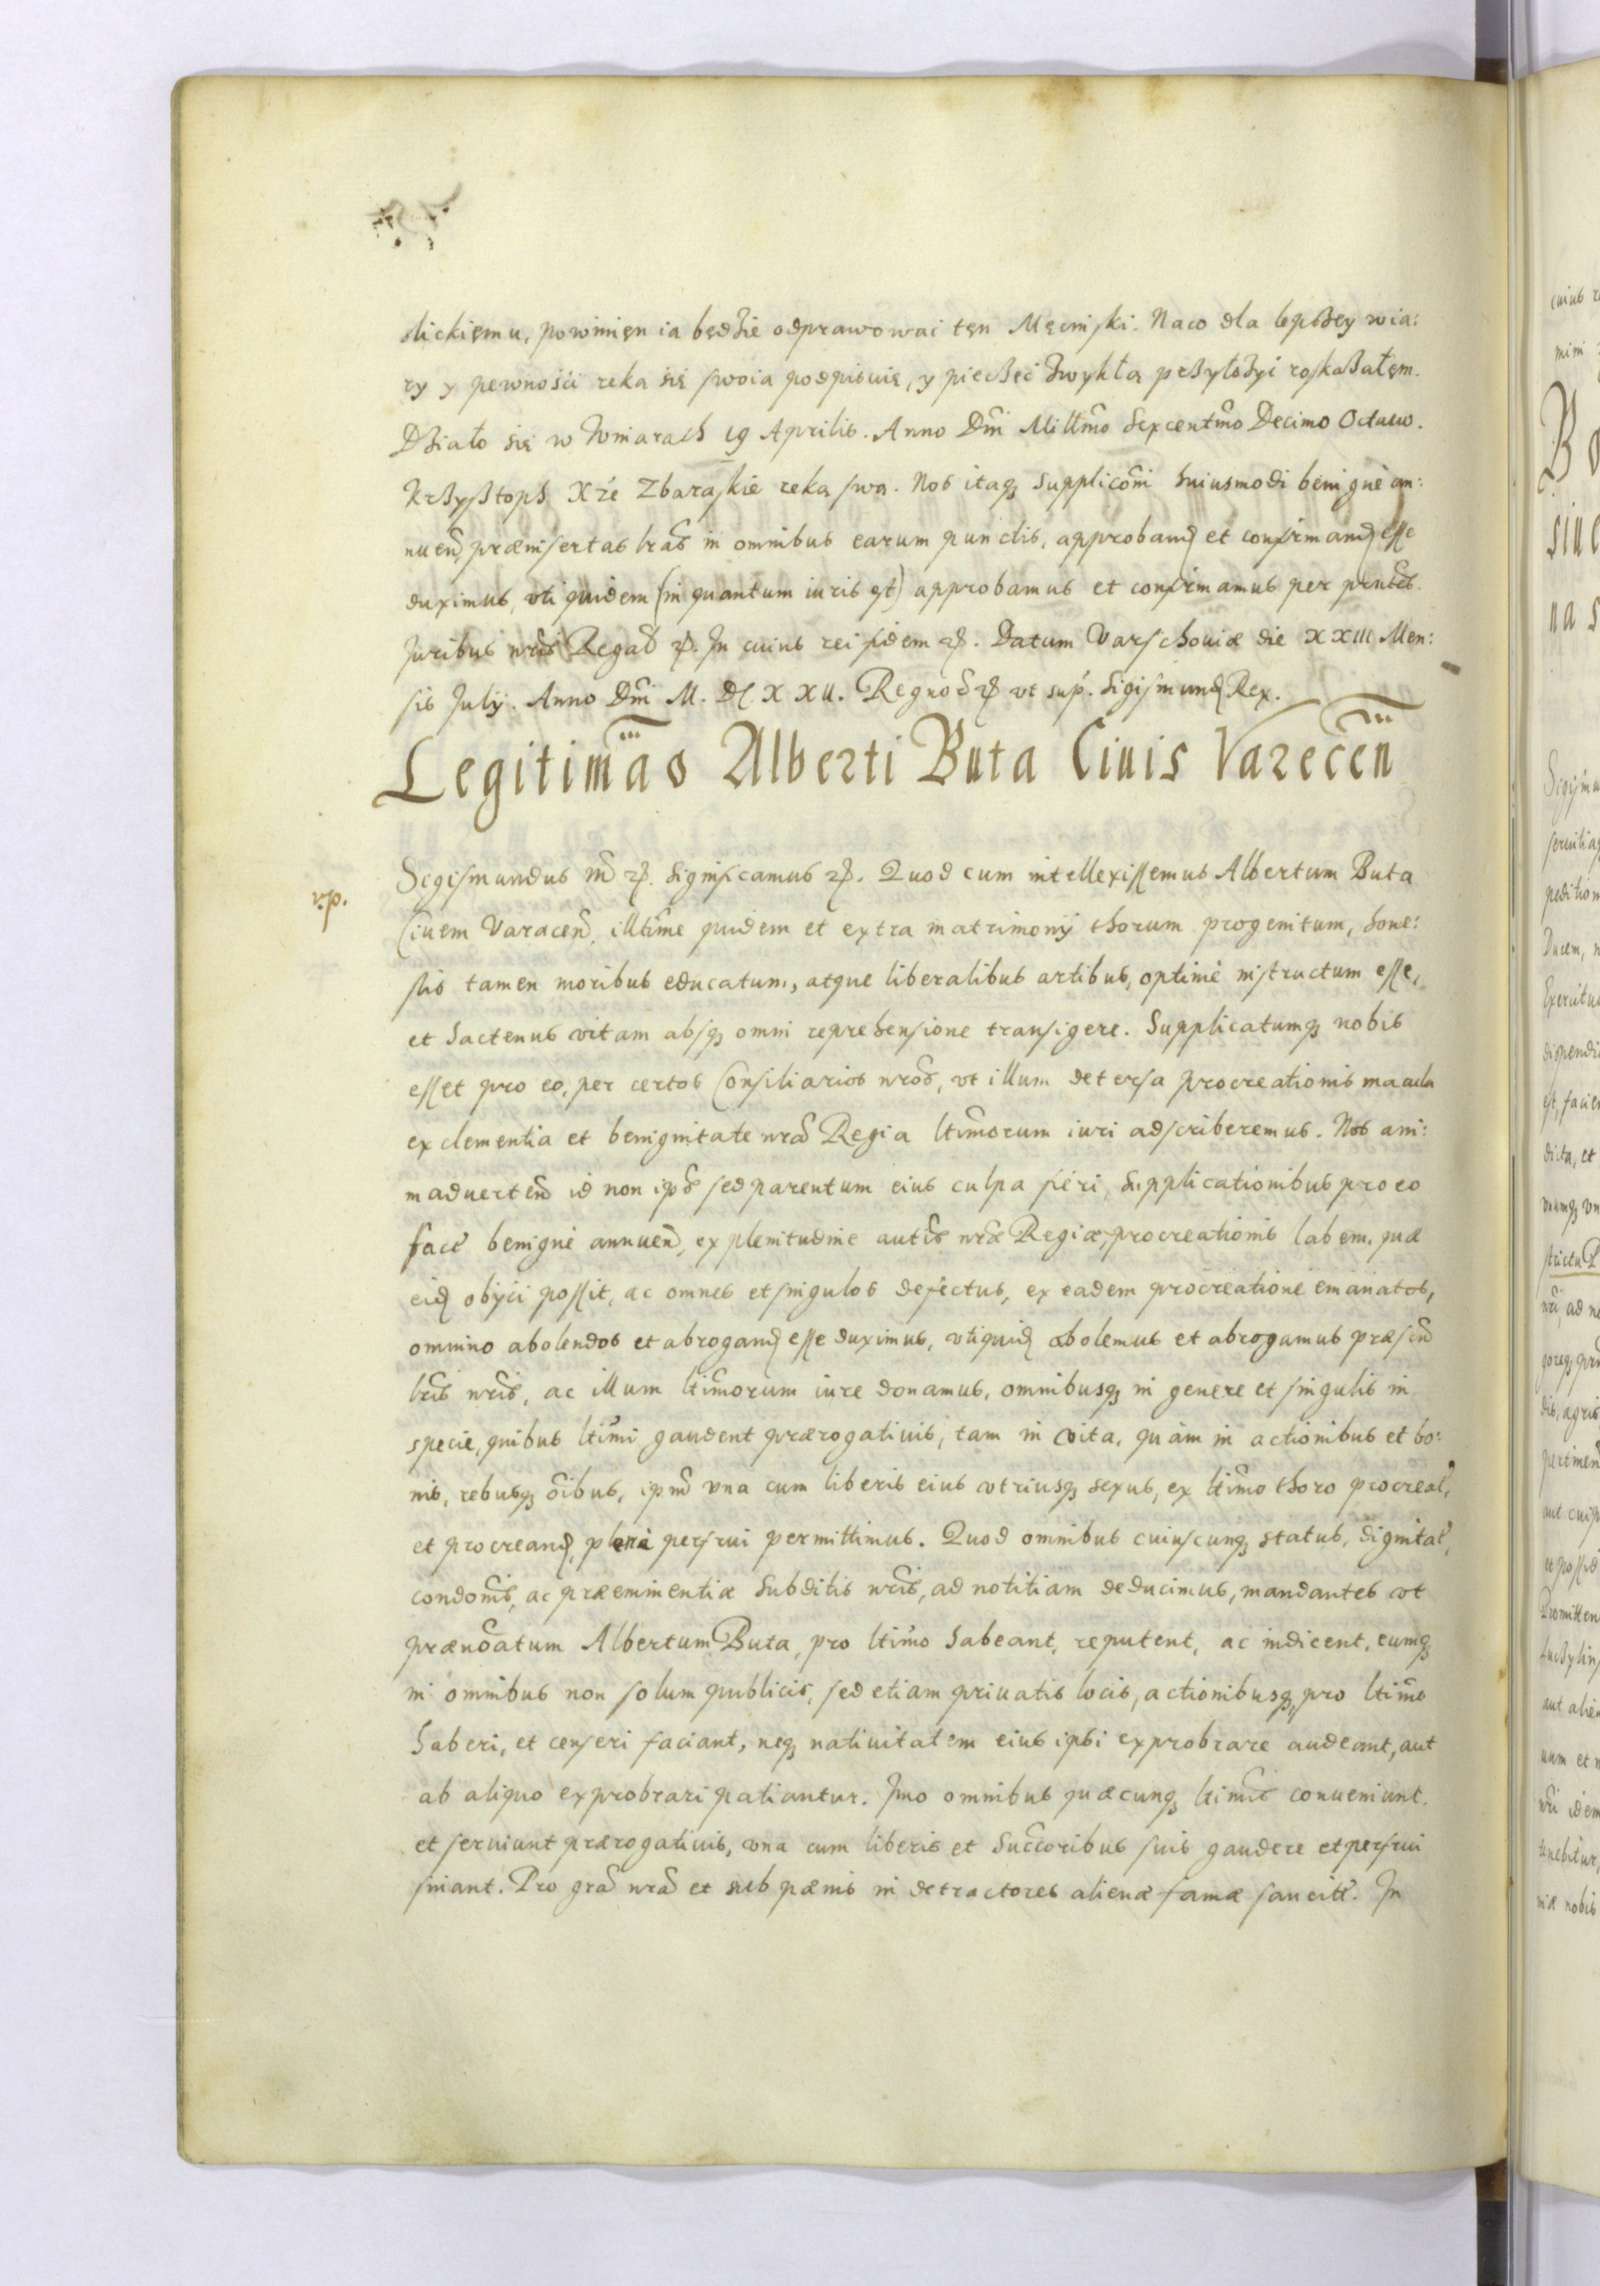 slickięmu, powinięn ia będzie odprawowai tęn Męcinski. Naco dla lepszey wia:
ry y pewności ręka się swoia podpisuię, y pieczęć zwykłą przyłożyć roskazałęm.
Działo się w Iwniarach 19 Aprilis. Anno Dni Millmo Sexcentmo Decimo Octauo.
Krzysztoph Xże Zbaraskie ręką swą. Nos itaq3 suppliconi huiusmodi benigne an:
nuen̄ præinsertas lras in omnibus earum punctis, approband et confirmand esse
duximus, vti quidem (in quantum iuris est) approbamus et confirmamus per pntes.
Juribus nris Regal etc. In cuius rei fidem etc. Datum Varschouiæ die XXIII Men:
sis Julij. Anno Dni M. DC. XXII. Regnor etc vt sup. Sigismund Rex.
Legitimao Alberti Buta Ciuis Varecen
v.p.
Sigismundus III etc. Significamus etc. Quod cum intellexissemus Albertum Buta
Ciuem Varacen, illtime quidem et extra matrimonij thorum progenitum, hone:
stis tamen moribus educatum, atque liberalibus artibus, optimè instructum esse,
et hactenus vitam absq3 omni reprehensione transigere. Supplicatumq3 nobis
esset pro eo, per certos Consiliarios nros, vt illum detersa procreationis macula
ex clementia et benignitate nra Regia ltimorum iuri adscriberemus. Nos ani:
maduerten id non ipso sed parentum eius culpa fieri, supplicationibus pro eo
fact benignè annuen, ex plenitudine auttis nræ Regiæ, procreationis labem, quæ
eid obijci possit, ac omnes et singulos defectus, ex eadem procreatione emanatos,
omnino abolendos et abrogand esse duximus, vtiquid abolemus et abrogamus præsen
lris nris, ac illum ltimorum iure donamus, omnibusq3 in genere et singulis in
specie, quibus ltimi gaudent prærogatiuis, tam in vita, quàm in actionibus et bo:
nis, rebusq3 oibus, ipm vna cum liberis eius vtriusq3 sexus, ex ltimo thoro procreat,
et procreand, plenè perfrui permittimus. Quod omnibus cuiuscunq3 status, dignitat,
condonis, ac præeminentiæ Subditis nris, ad notitiam deducimus, mandantes vt
prænoatum Albertum Buta, pro ltimo habeant, reputent, ac indicent, eumq3
in omnibus non solum publicis, sed etiam priuatis locis, actionibusq3, pro ltimo
haberi, et censeri faciant, neq3 natiuitatem eius ipsi exprobrare audeant, aut
ab aliquo exprobrari patiantur. Imo omnibus quæcunq3 ltimis conueniunt,
et seruiunt prærogatiuis, vna cum liberis et Succoribus suis gaudere et perfrui
sinant. Pro gra nra et sub pænis in detractores alienæ famæ sancit. In